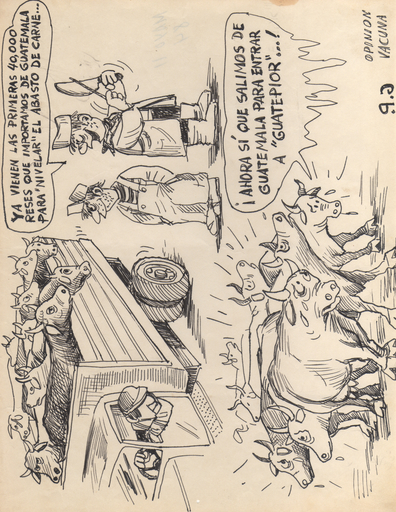 YA VIENEN LAS PRIMERAS 40,000
RESES QUE IMPORTAMOS DE GUATEMALA
PARA "NIVELAR" EL ABASTO DE CARNE...
¡AHORA SÍ QUE SALIMOS DE
GUATEMALA PARA ENTRAR
A "GUATEPIOR"...!
OPINION
VACUNA